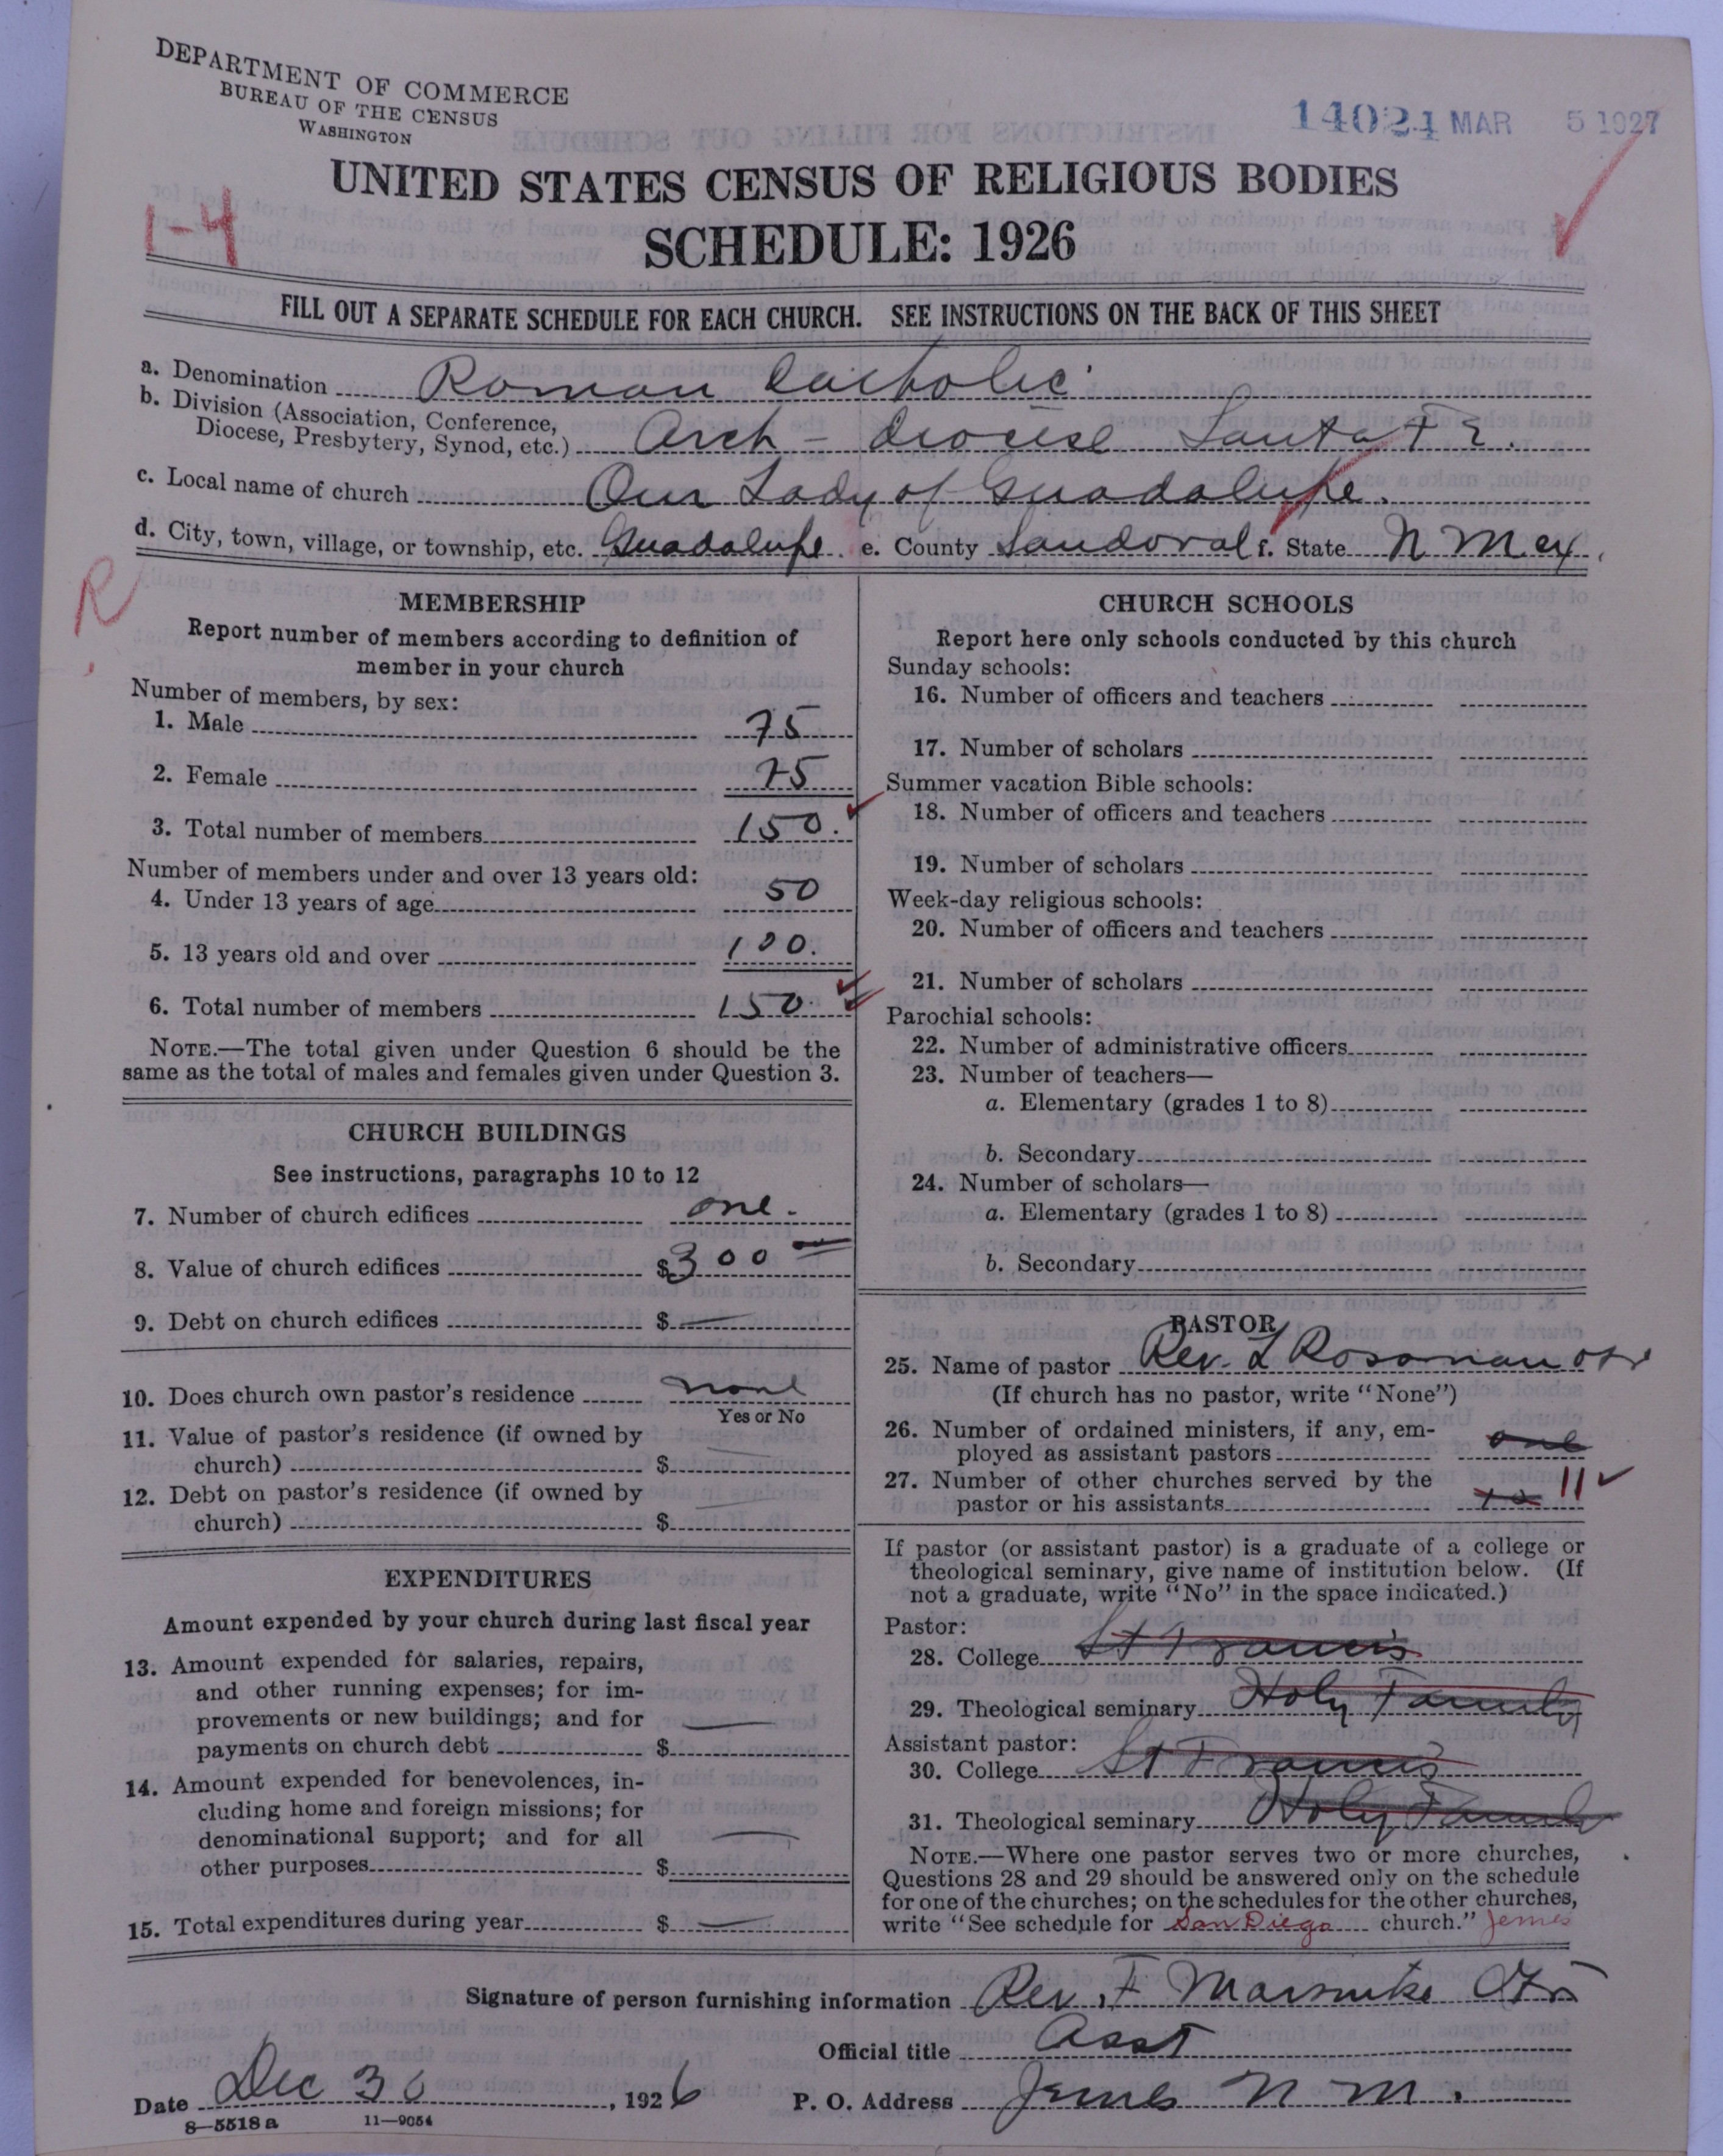 DEPARTMENT OF COMMERCE
BUREAU OF THE CENSUS
WASHINGTON
14024 MAR 5 1927
UNITED STATES CENSUS OF RELIGIOUS BODIES
1-4
SCHEDULE: 1926
FILL OUT A SEPARATE SCHEDULE FOR EACH CHURCH. SEE INSTRUCTIONS ON THE BACK OF THIS SHEET
a. Denomination Roman Catholic
b. Division (Association, Conference,
Diocese, Presbytery, Synod, etc.) Arch - diocese Santa Fe.
c. Local name of church Our Lady of Guadalupe.
d. City, town, village, or township, etc. Guadalupe e. County Sandoval f. State N Mex.
R
MEMBERSHIP
Report number of members according to definition of
member in your church
Number of members, by sex:
1. Male 75
2. Female 75
3. Total number of members 150.
Number of members under and over 13 years old:
4. Under 13 years of age 50
5. 13 years old and over 100.
6. Total number of members 150.
NOTE.—The total given under Question 6 should be the
same as the total of males and females given under Question 3.
CHURCH BUILDINGS
See instructions, paragraphs 10 to 12
7. Number of church edifices one.
8. Value of church edifices $300
9. Debt on church edifices $ —
10. Does church own pastor's residence none
Yes or No
11. Value of pastor's residence (if owned by
church) $ —
12. Debt on pastor's residence (if owned by
church) $ —
EXPENDITURES
Amount expended by your church during last fiscal year
13. Amount expended for salaries, repairs,
and other running expenses; for im-
provements or new buildings; and for
payments on church debt $ —
14. Amount expended for benevolences, in-
cluding home and foreign missions; for
denominational support; and for all
other purposes $ —
15. Total expenditures during year $ —
CHURCH SCHOOLS
Report here only schools conducted by this church
Sunday schools:
16. Number of officers and teachers
17. Number of scholars
Summer vacation Bible schools:
18. Number of officers and teachers
19. Number of scholars
Week-day religious schools:
20. Number of officers and teachers
21. Number of scholars
Parochial schools:
22. Number of administrative officers
23. Number of teachers—
a. Elementary (grades 1 to 8)
b. Secondary
24. Number of scholars—
a. Elementary (grades 1 to 8)
b. Secondary
PASTOR
25. Name of pastor Rev. L Rosonau
(If church has no pastor, write "None")
26. Number of ordained ministers, if any, em-
ployed as assistant pastors one
27. Number of other churches served by the
pastor or his assistants 11
If pastor (or assistant pastor) is a graduate of a college or
theological seminary, give name of institution below. (If
not a graduate, write "No" in the space indicated.)
Pastor:
28. College St Francis
29. Theological seminary Holy Family
Assistant pastor:
30. College St Francis
31. Theological seminary Holy Family
NOTE.—Where one pastor serves two or more churches,
Questions 28 and 29 should be answered only on the schedule
for one of the churches; on the schedules for the other churches,
write "See schedule for San Diego church." Jemes
Signature of person furnishing information Rev. F
Official title Asst
Date Dec 30, 1926 P. O. Address Jemes N M.
8—5518 a 11—9054